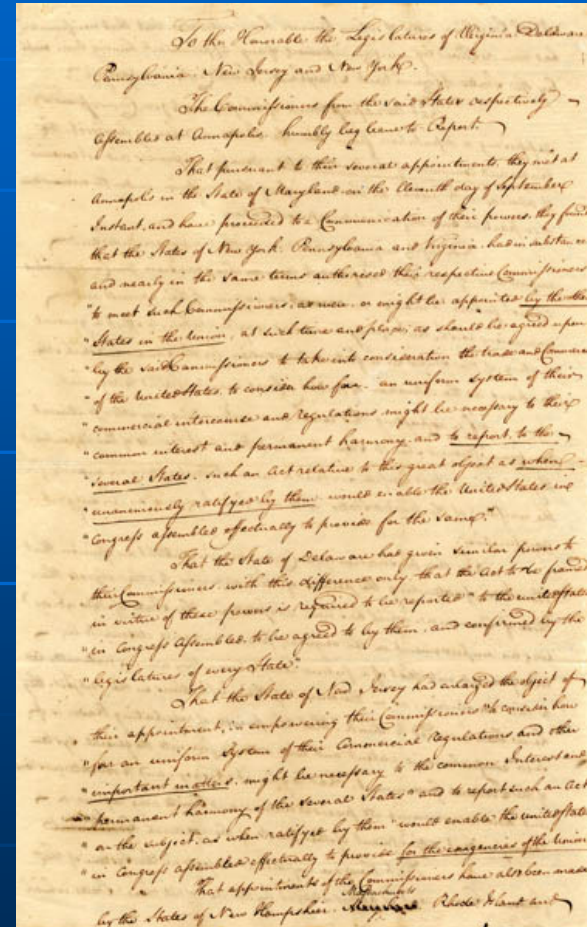 To the Honorable the Legislatures of Virginia Delaware
Pennsylvania. New Jersey and New York.
The Commissioners from the said States respectively
Assembled at Annapolis. humbly beg leave to Report.
That pursuant to their several appointments, they met at
Annapolis in the State of Maryland on the Eleventh day of September
Instant, and have proceeded to a Communication of their powers, they find
that the States of New York. Pennsylvania and Virginia. had in substance
and nearly in the same terms authorised their respective Commissioners
"to meet such Commissioners, as were, or might be appointed by the other
"States in the Union, at such time and place, as should be agreed upon
"by the said Commissioners to take into consideration the trade and Commerce
"of the United States, to consider how far. an uniform system of their
"commercial intercourse and regulations might be necessary to their
"common interest and permanent harmony, and to report, to the
"several States. such an Act relative to this great object as when
"unanimously ratifyed by them. would enable the United States in
"Congress assembled effectually to provide for the same."
That the State of Delaware had given similar powers to
their Commissioners, with this difference only, that the Act to be framed
in virtue of these powers is required to be reported "to the united states
"in Congress Assembled, to be agreed to by them, and confirmed by the
"legislatures of every State."
That the State of New Jersey had enlarged the object of
their appointment, in empowering their Commissioners "to consider how
"far an uniform System of their Commercial Regulations and other
"important matters, might be necessary to the common Interest and
"permanent harmony of the several States" and to report such an Act
"on the subject, as when ratifyed by them "would enable the united states
"in Congress assembled effectually to provide for the exigencies of the Union
That appointments of the Commissioners have also been made
Massachusetts
by the States of New Hampshier. Rhode Island and